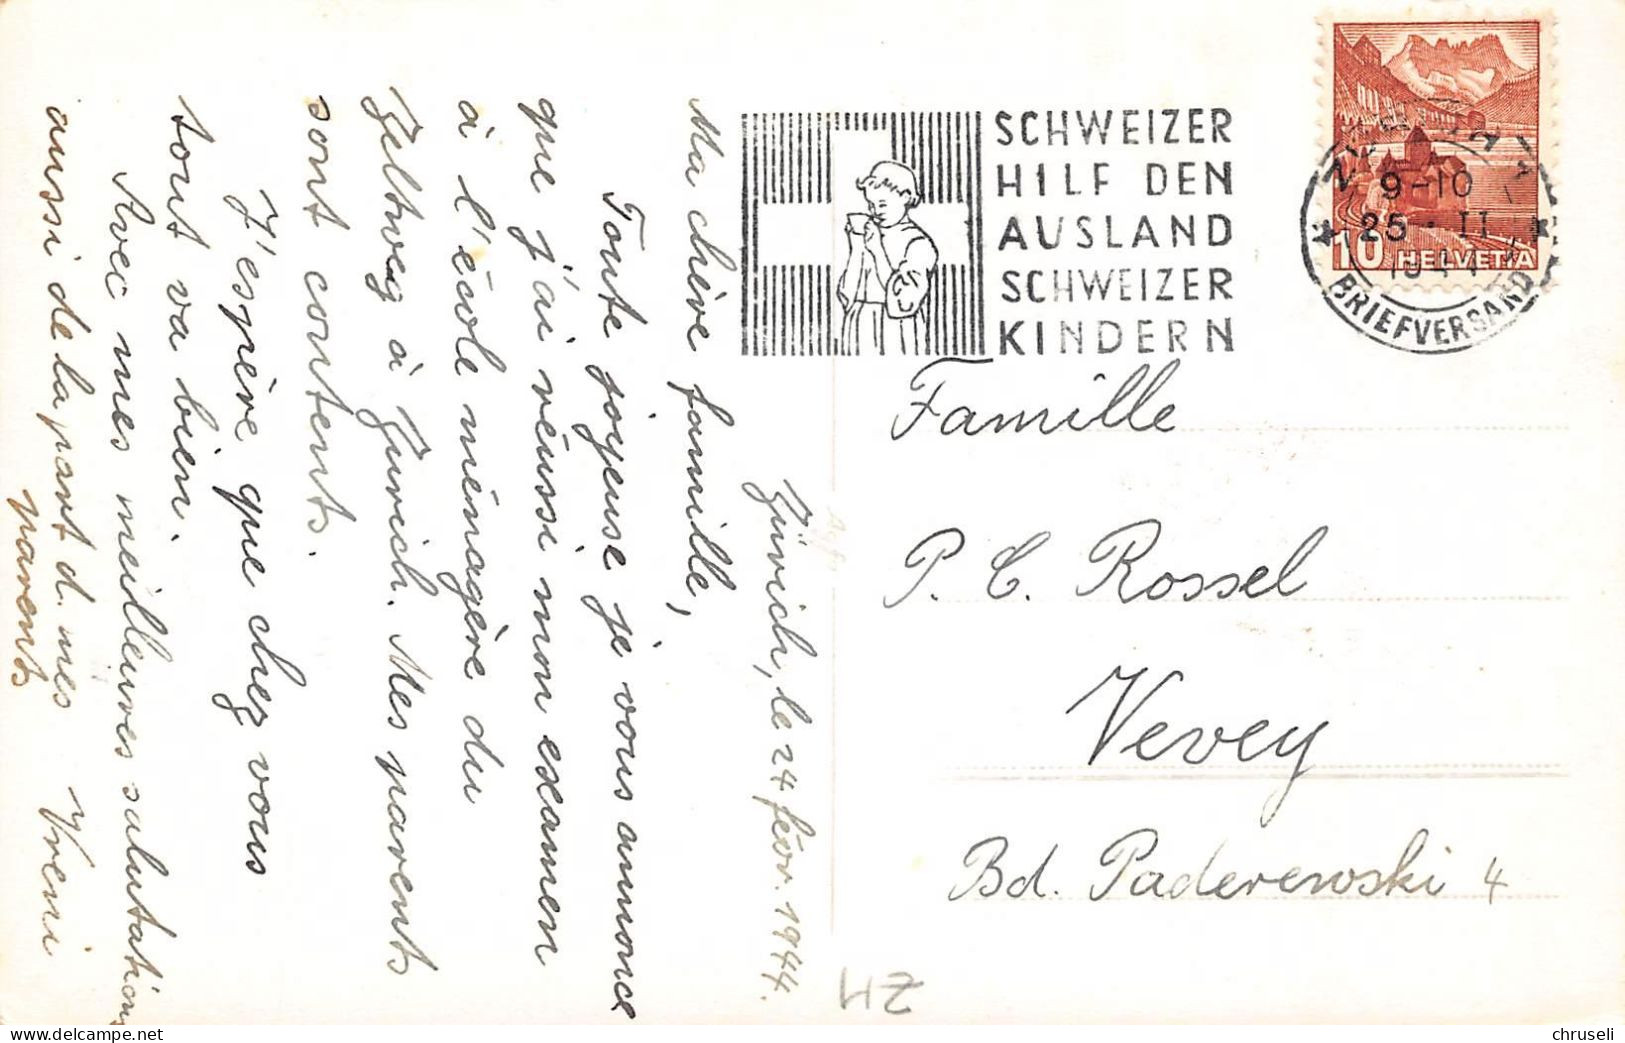 Zürich, le 24 févr. 1944.
Ma chère famille,
Toute joyeuse je vous annonce
que j'ai réussi mon examen
à l'école ménagère du
Zeltweg à Zurich. Mes parents
sont contents.
J'espère que chez vous
tout va bien.
Avec mes meilleures salutations
aussi de la part d. mes
parents Vreni
SCHWEIZER
HILF DEN
AUSLAND
SCHWEIZER
KINDERN
9-10
25. II
1944
BRIEFVERSAND
10 HELVETIA
Famille
P. C. Rossel
Vevey
Bd. Paderewski 4
ZH
chruseli